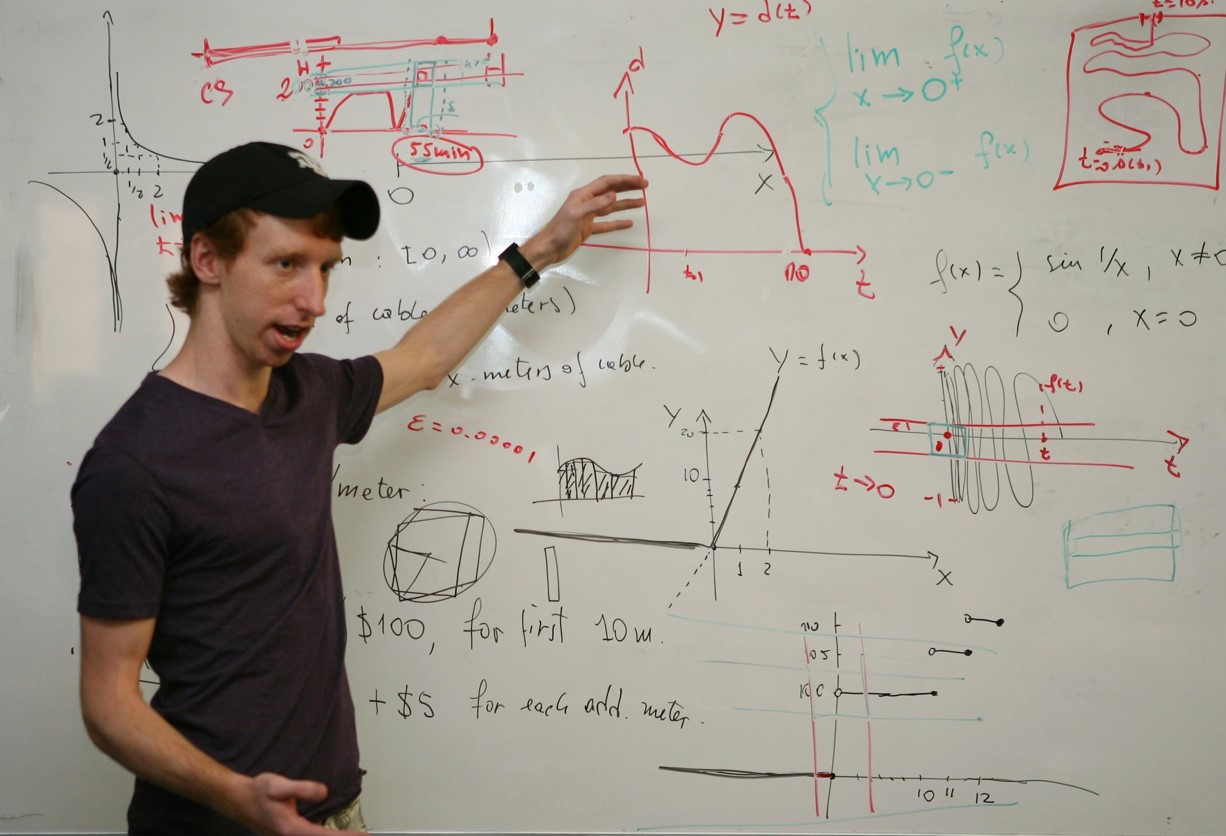 y = d(t)
t=10
lim f(x)
x → 0+
lim f(x)
x → 0-
cs
H
2
0
55min
d
x
t
t,
10
2
1
1/2
2
lim
0
[0, ∞)
of cable
meters)
x meters of cable.
f(x) = { sin 1/x , x ≠ 0
0 , x = 0
y
f(t)
t
t
t → 0
-1
ε = 0.00001
y = f(x)
y
20
10
1 2
x
/meter:
$100, for first 10m.
+ $5 for each add. meter.
110
105
100
10 11 12